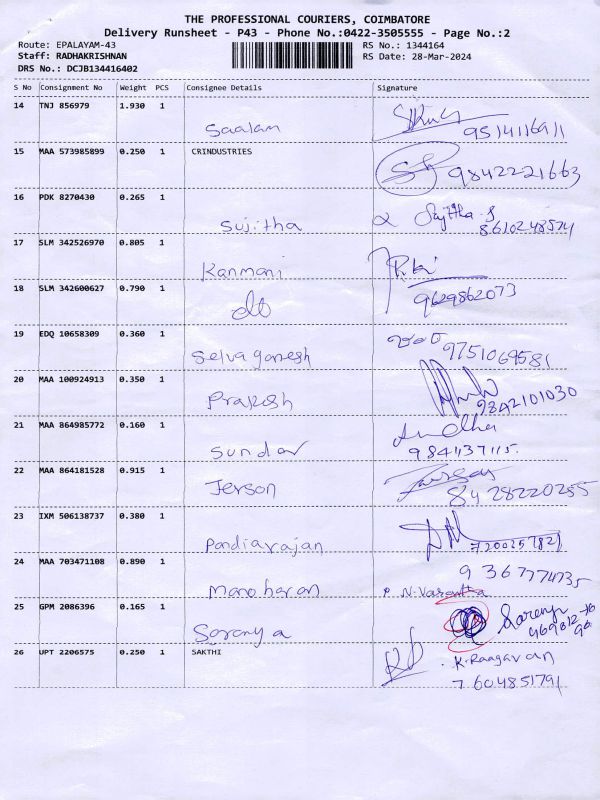 THE PROFESSIONAL COURIERS, COIMBATORE
Delivery Runsheet - P43 - Phone No.:0422-3505555 - Page No.:2
Route: EPALAYAM-43 RS No.: 1344164
Staff: RADHAKRISHNAN RS Date: 28-Mar-2024
DRS No.: DCJB134416402
S No Consignment No Weight PCS Consignee Details Signature
14 TNJ 856979 1.930 1
Saalam 9514116911
15 MAA 573985899 0.250 1 CRINDUSTRIES
9842221663
16 PDK 8270430 0.265 1
Sujitha Sujitha.S
8610248574
17 SLM 342526970 0.805 1
Kanmani
18 SLM 342600627 0.790 1
do 9629862073
19 EDQ 10658309 0.360 1
Selvaganesh 9751069581
20 MAA 100924913 0.350 1
Prakash 9842101030
21 MAA 864985772 0.160 1
Sundar
9841137115.
22 MAA 864181528 0.915 1
Jerson 8428220255
23 IXM 506138737 0.380 1
Pandiarajan 7200257821
24 MAA 703471108 0.890 1 9367774735
Manoharan N.Varantha
25 GPM 2086396 0.165 1
Saranya Saranya
26 UPT 2206575 0.250 1 SAKTHI
K.Raagavan
7604851791